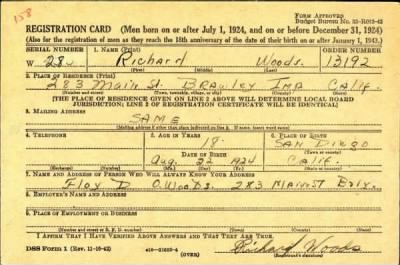 158
FORM APPROVED
BUDGET BUREAU No. 33-R012-42
REGISTRATION CARD (Men born on or after July 1, 1924, and on or before December 31, 1924)
(Also for the registration of men as they reach the 18th anniversary of the date of their birth on or after January 1, 1943.)
SERIAL NUMBER 1. NAME (Print) ORDER NUMBER
W 280 Richard Woods 13192
2. PLACE OF RESIDENCE (Print)
283 Main St. Brawley Imp Calif.
(Number and street) (Town, township, village, or city) (County) (State)
[THE PLACE OF RESIDENCE GIVEN ON LINE 2 ABOVE WILL DETERMINE LOCAL BOARD
JURISDICTION; LINE 2 OF REGISTRATION CERTIFICATE WILL BE IDENTICAL]
3. MAILING ADDRESS
SAME
[Mailing address if other than place indicated on line 2. If same, insert word same]
4. TELEPHONE 5. AGE IN YEARS 6. PLACE OF BIRTH
18 SAN DIEGO
DATE OF BIRTH (Town or county)
Aug. 22 1924 Calif.
(Exchange) (Number) (Mo.) (Day) (Yr.) (State or country)
7. NAME AND ADDRESS OF PERSON WHO WILL ALWAYS KNOW YOUR ADDRESS
Floy D. Woods. 283 Main St
8. EMPLOYER'S NAME AND ADDRESS
9. PLACE OF EMPLOYMENT OR BUSINESS
(Number and street or R. F. D. number) (Town) (County) (State)
I AFFIRM THAT I HAVE VERIFIED ABOVE ANSWERS AND THAT THEY ARE TRUE.
DSS Form 1 (Rev. 11-16-42) (OVER) Richard Woods
(Registrant's signature)